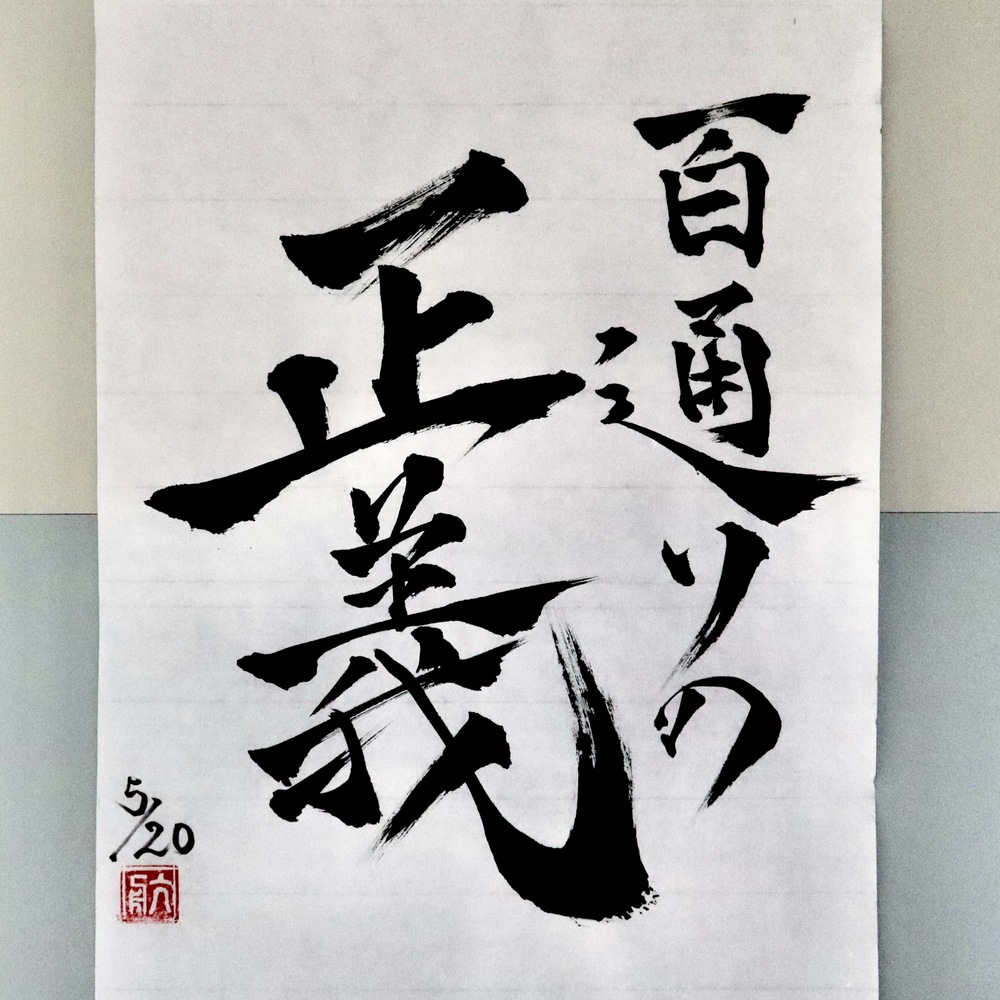 百通りの
正義
5/20